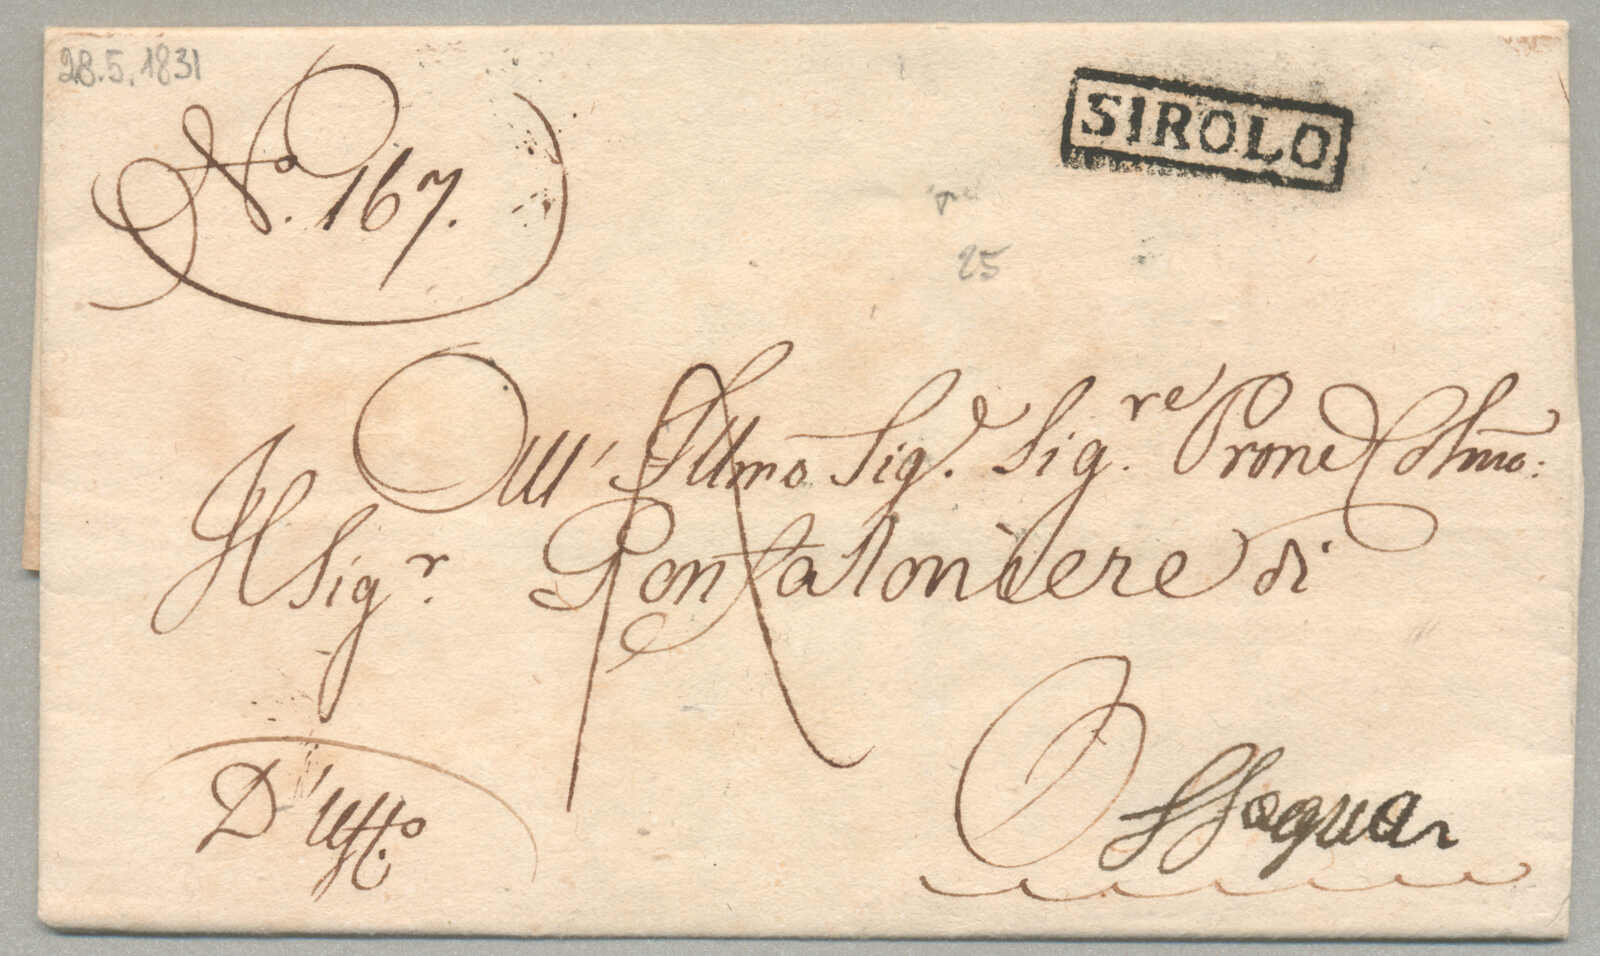 28.5.1831
SIROLO
No. 167.
25
All' Illmo Sig.e Sig.re Prone Colmo:
Il Sig.r Gonfaloniere di
D'Uffo.